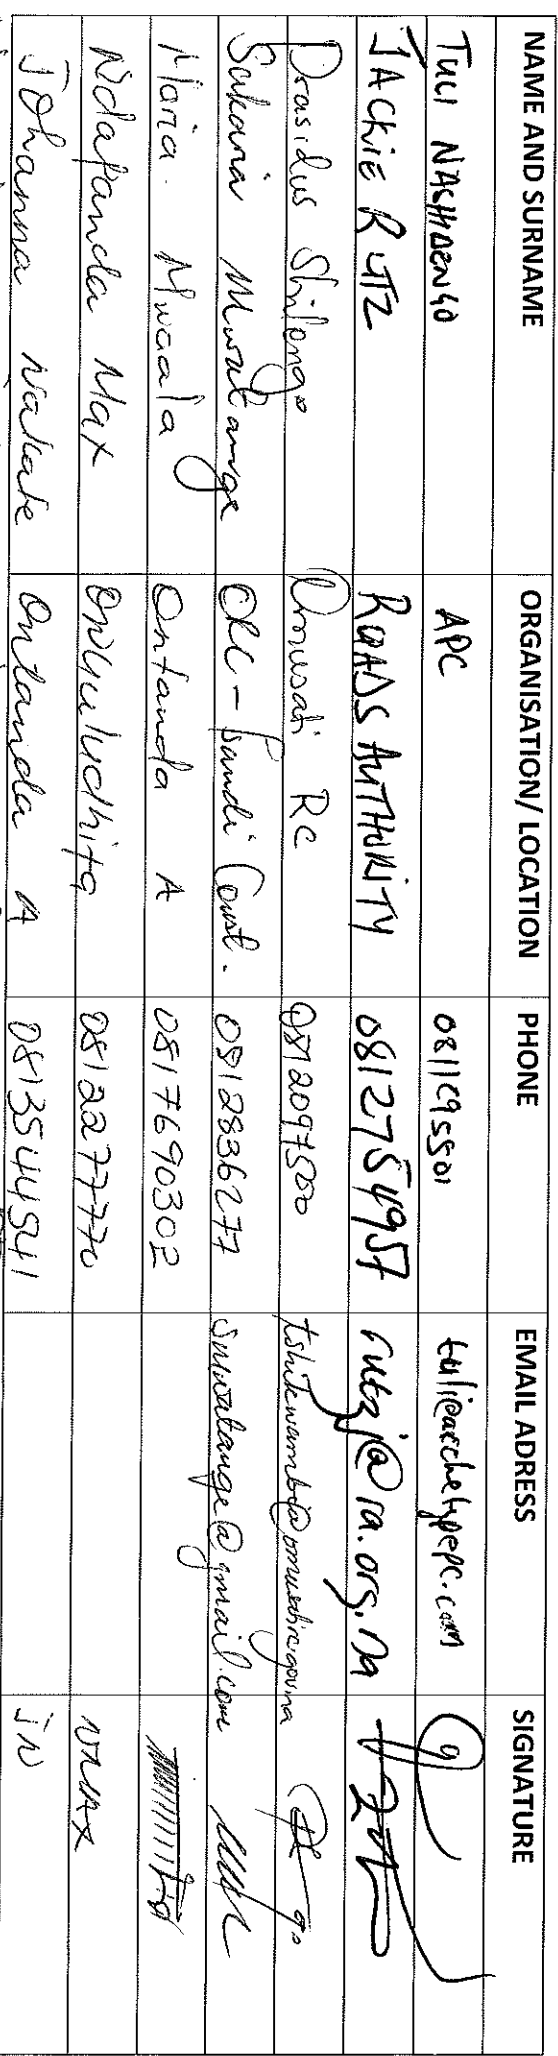 NAME AND SURNAME ORGANISATION/ LOCATION PHONE EMAIL ADRESS SIGNATURE
TULI NASHIDENGO APC tuli@archetypepc.com
JACKIE RUTZ ROADS AUTHORITY 0812754957 rutzj@ra.org.na
Shilongo Omusati RC 0812097500
Sakaria Mwatange ORC - Const. 0812836277 smwatange@gmail.com
Maria Mwaala Ontanda A 0817690302
Ndapanda Max Onguludhita 0812277770 NMAX
Johanna Nakale Ontanda A 0813544541 JN